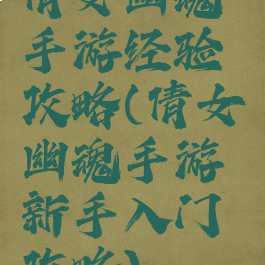 倩女幽魂
手游经验
攻略(倩女
幽魂手游
新手入门
攻略)